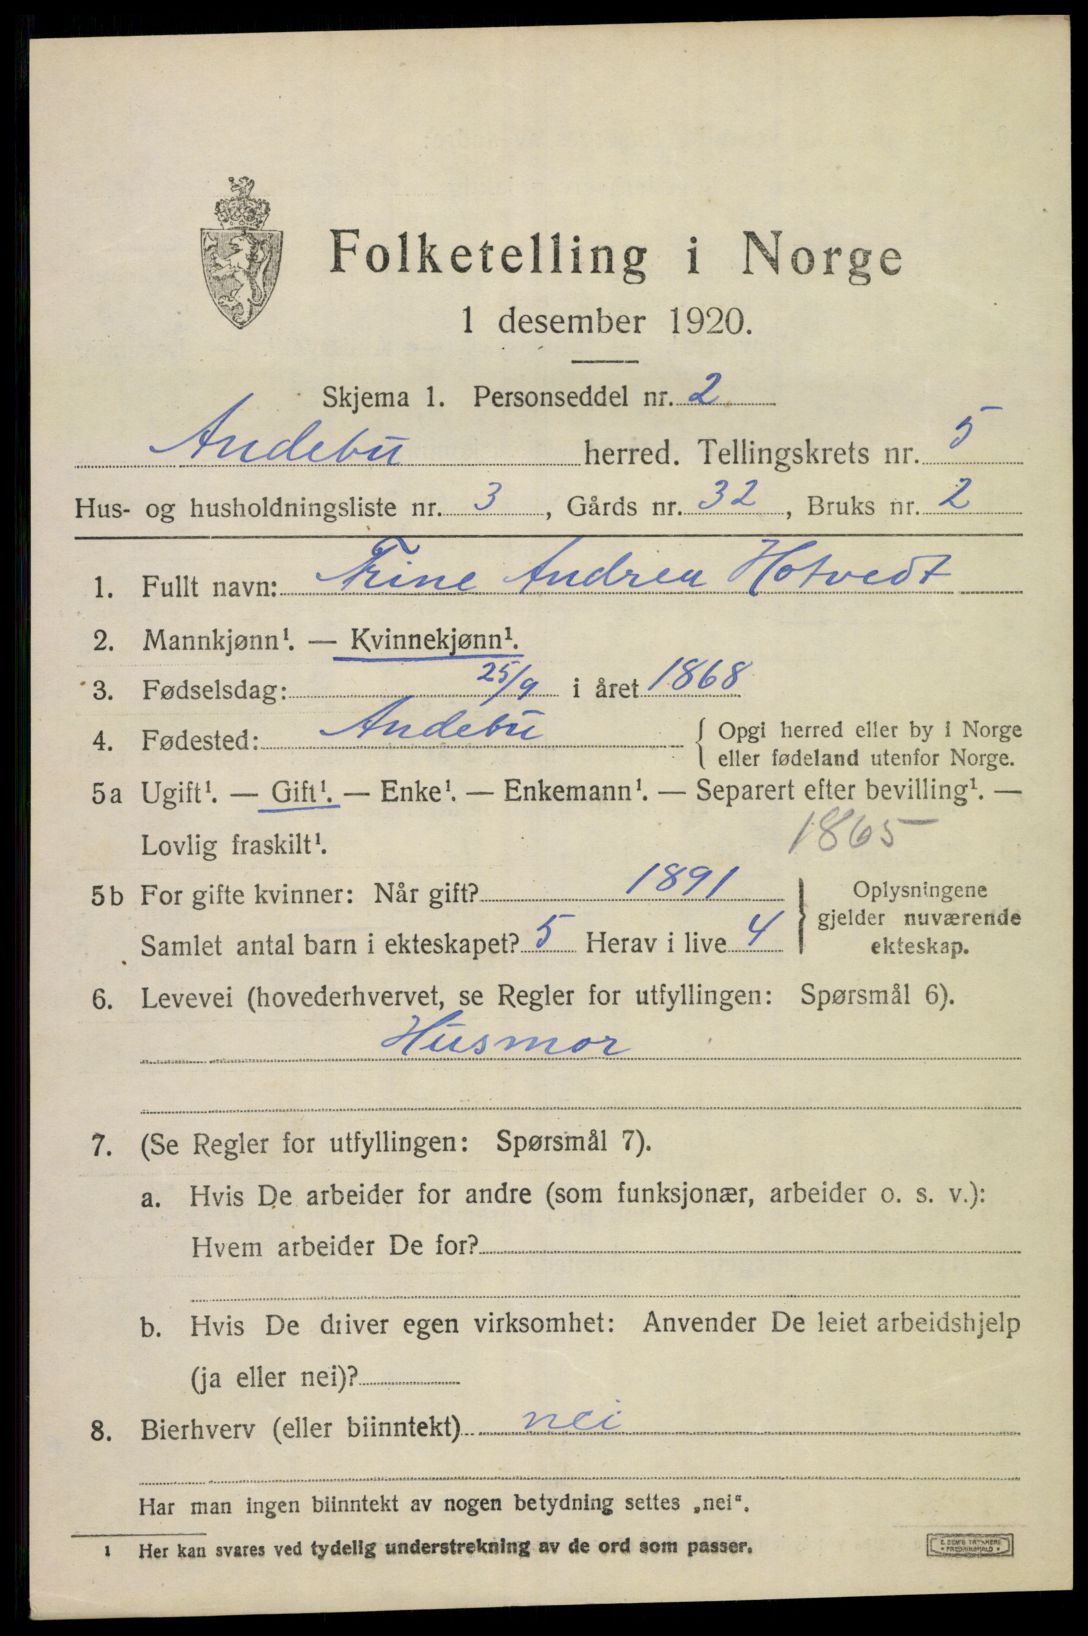 Folketelling i Norge
1 desember 1920.
Skjema 1. Personseddel nr. 2
Andebu herred. Tellingskrets nr. 5
Hus- og husholdningsliste nr. 3, Gårds nr. 32, Bruks nr. 2
1. Fullt navn: Trine Andrea Hotvedt
2. Mannkjønn¹. — Kvinnekjønn¹.
3. Fødselsdag: 25/9 i året 1868
4. Fødested: Andebu { Opgi herred eller by i Norge
eller fødeland utenfor Norge.
5a Ugift¹. — Gift¹. — Enke¹. — Enkemann¹. — Separert efter bevilling¹. —
Lovlig fraskilt¹. 1865
5b For gifte kvinner: Når gift? 1891 } Oplysningene
gjelder nuværende
Samlet antal barn i ekteskapet? 5 Herav i live 4 ekteskap.
6. Levevei (hovederhvervet, se Regler for utfyllingen: Spørsmål 6).
Husmor
7. (Se Regler for utfyllingen: Spørsmål 7).
a. Hvis De arbeider for andre (som funksjonær, arbeider o. s. v.):
Hvem arbeider De for?
b. Hvis De driver egen virksomhet: Anvender De leiet arbeidshjelp
(ja eller nei)?
8. Bierhverv (eller biinntekt) nei
Har man ingen biinntekt av nogen betydning settes „nei“.
1 Her kan svares ved tydelig understrekning av de ord som passer.